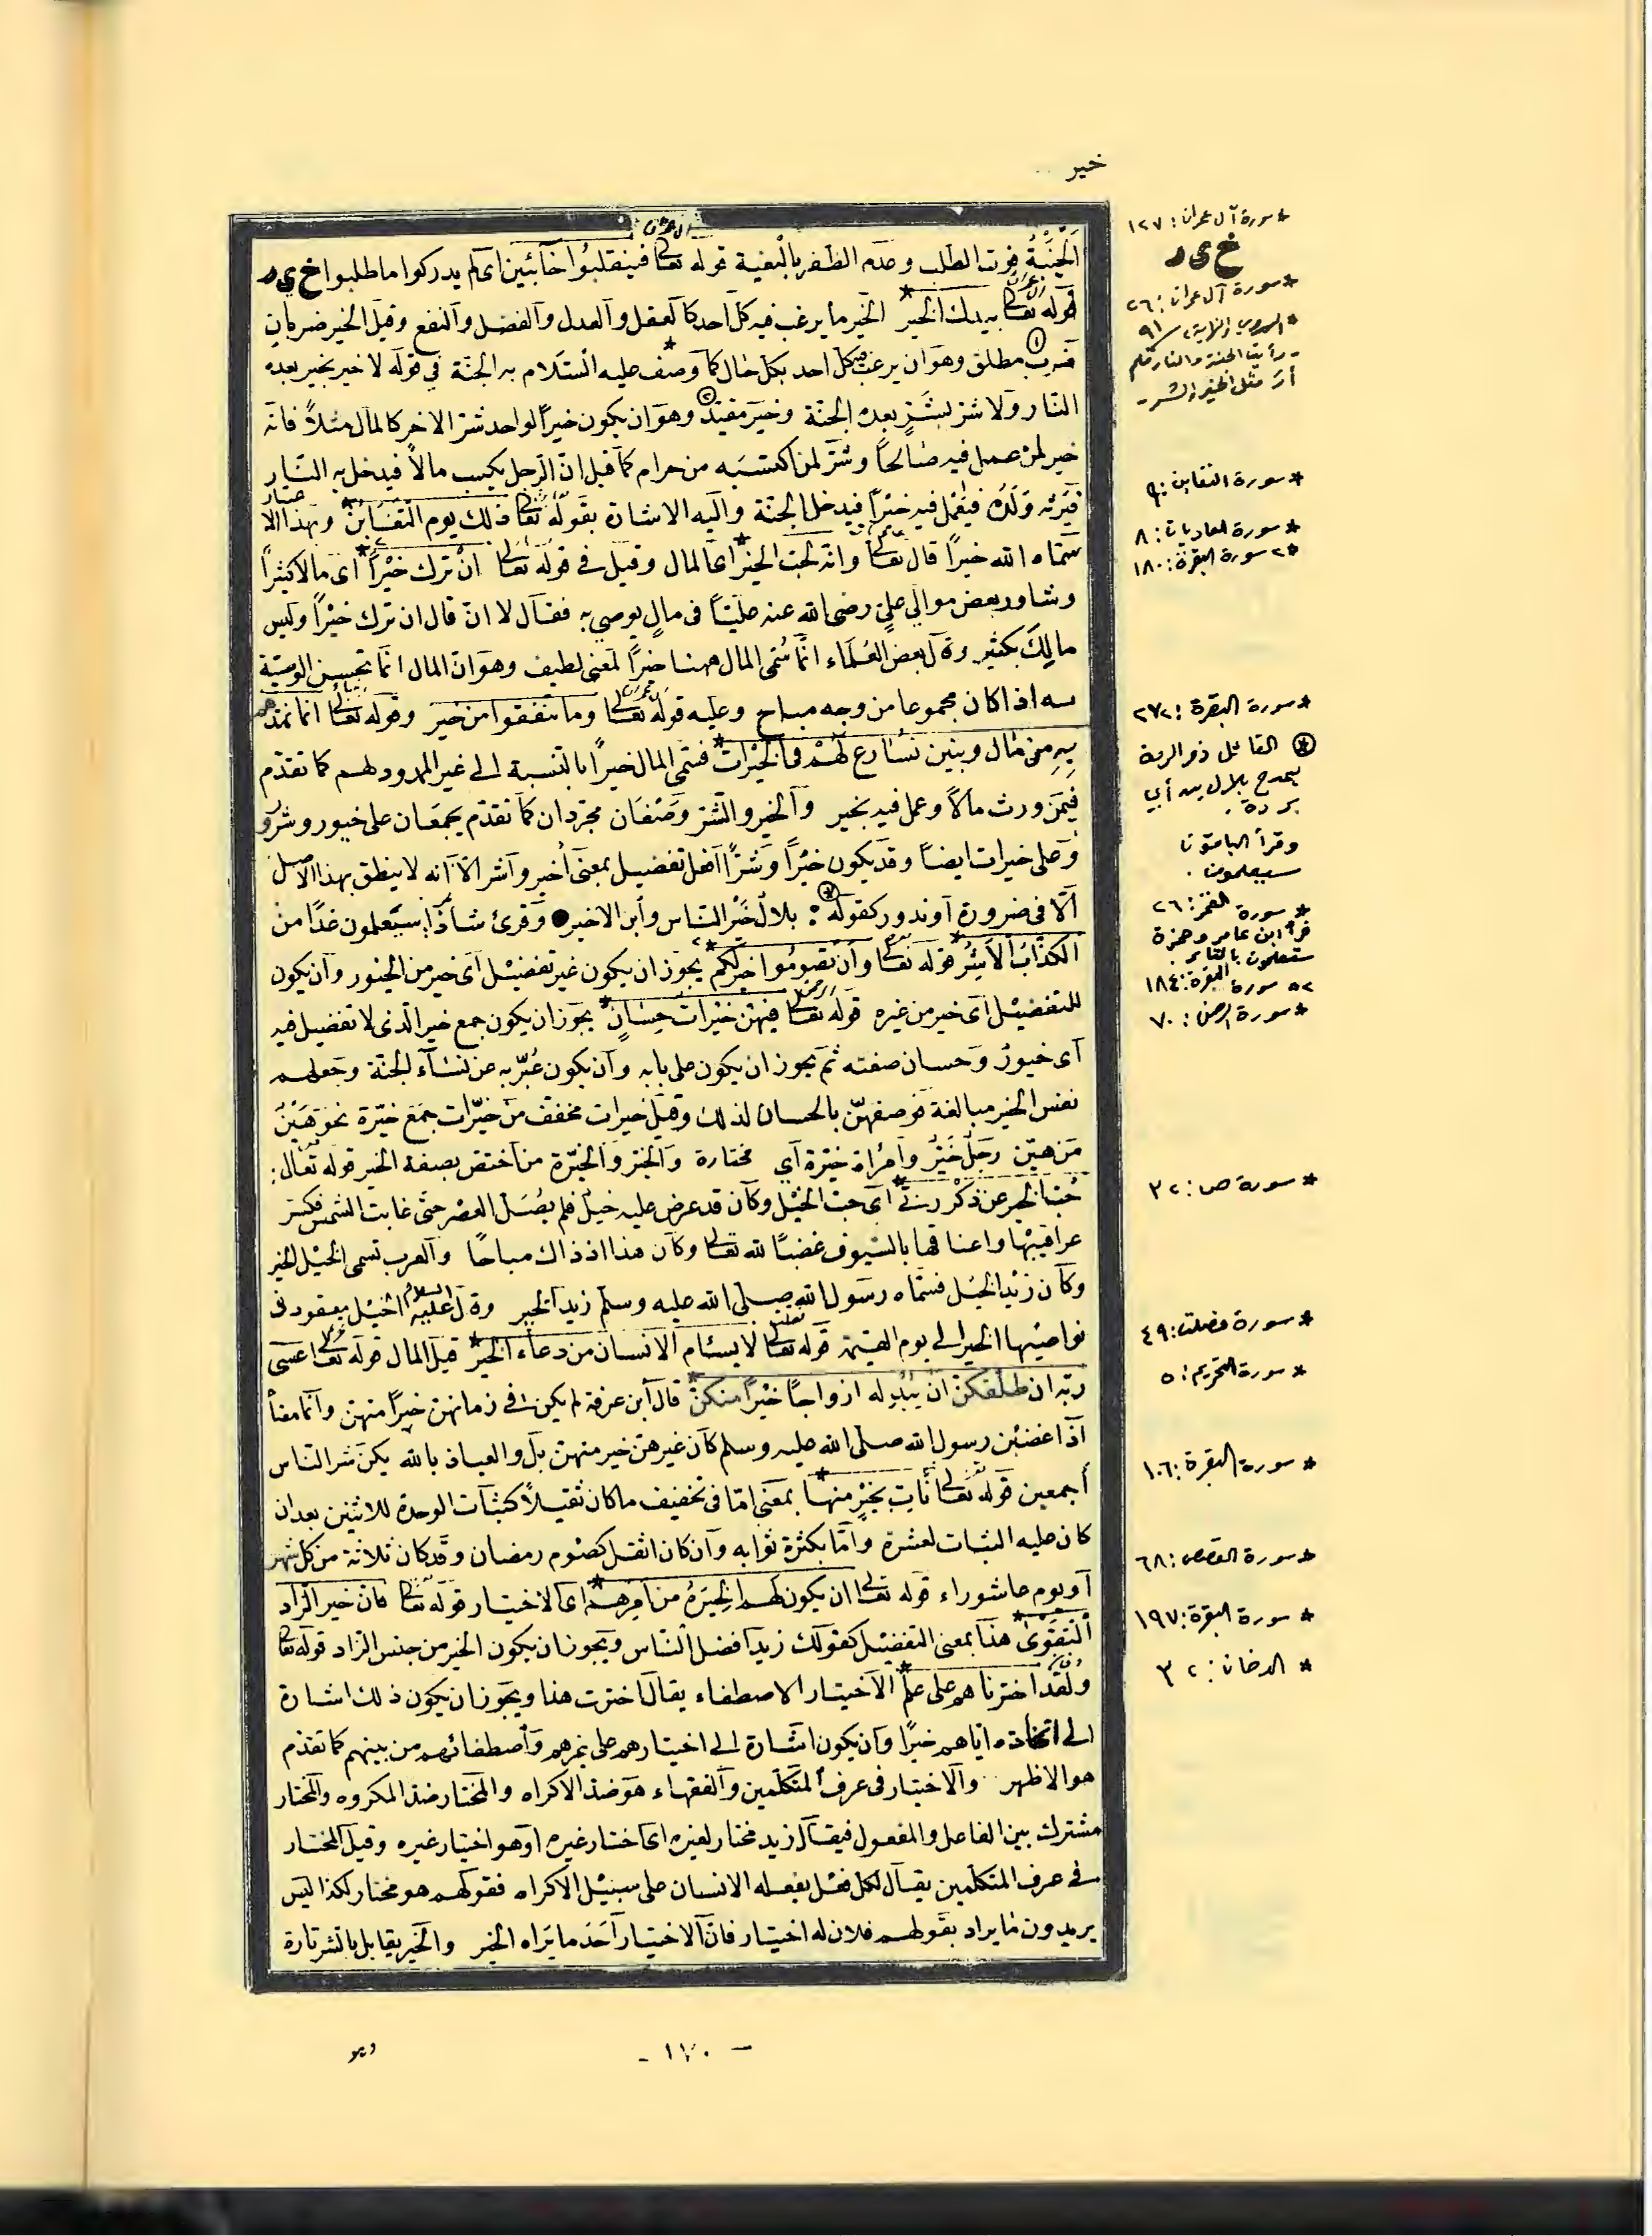 خير
آل عمران
الخيبة فوت الطلب وعدم الظفر بالبغية قوله تعالى فينقلبوا خآئبين اى لم يدركوا ما طلبوا خ ي ر
قوله تعالى بيدك الخير الخير ما يرغب فيه كل احد كالعقل والعدل والفضل والنفع وقيل الخير ضربان
ضرب مطلق وهو ان يرغب فيه كل احد بكل حال كما وصف عليه السلام به الجنة في قوله لا خير بخير بعده
النار ولا شر بشر بعده الجنة وخير مقيد وهو ان يكون خيراً لواحد شر الاخر كالمال مثلاً فانه
خير لمن عمل فيه صالحاً وشر لمن اكتسبه من حرام كما قيل ان الرجل يكسب مالاً فيدخل به النار
فيرثه ولده فيعمل فيه خيراً فيدخل الجنة واليه الاشارة بقوله تعالى ذلك يوم التغابن وبهذا الاعتبار
سماه الله خيراً قال تعالى وانه لحب الخير اى المال وقيل في قوله تعالى ان ترك خيراً اى مالا كثيراً
وشاور بعض موالي علي رضى الله عنه علياً في مال يوصي به فقال لا ان قال ان ترك خيراً وليس
مالك بكثير وقال بعض العلماء انما سمى المال ههنا خيراً لمعنى لطيف وهو ان المال انما تحسن الوصية
به اذا كان مجموعا من وجه مباح وعليه قوله تعالى وما تنفقوا من خير وقوله تعالى انما نمدهم
به من مال وبنين نسارع لهم فى الخيرات فسمى المال خيراً بالنسبة الى غير الممدود لهم كما تقدم
فيمن ورث مالاً وعمل فيه بخير والخير والشر وصفان مجردان كما تقدم يجمعان على خيور وشرور
وعلى خيرات ايضاً وقد يكون خيراً وشراً افعل تفضيل بمعنى أخير وأشر الا انه لا ينطق بهذا الاصل
الا في ضرورة أو ندور كقوله : بلال خير الناس وابن الاخير وقرئ شاذا سيعلمون غدًا من
الكذاب الأشر قوله تعالى وأن تصوموا خير لكم يجوز ان يكون غير تفضيل أى خير من الخيور وأن يكون
للتفضيل أى خير من غيره قوله تعالى فيهن خيرات حسان يجوز ان يكون جمع خير الذى لا تفضيل فيه
أى خيور وحسان صفته ثم يجوز ان يكون على بابه وأن يكون عبر به عن نساء الجنة وجعلهم
نفس الخير مبالغة فوصفهن بالحسان لذلك وقيل خيرات مخفف من خيّرات جمع خيّرة نحو هين
من هيّن رجل خير وامرأة خيرة أي مختارة والخير والخيرة من اختص بصفة الخير قوله تعالى :
حب الخير عن ذكر ربي أى حب الخيل وكان قد عرض عليه خيل فلم يصل العصر حتى غابت الشمس فكسر
عراقيبها واعناقها بالسيوف غضباً لله تعالى وكان هذا اذ ذاك مباحًا والعرب تسمى الخيل الخير
وكان زيد الخيل فسماه رسول الله صلى الله عليه وسلم زيد الخير وقال عليه السلام الخيل معقود فى
نواصيها الخير الى يوم القيمة قوله تعالى لا يسئام الانسان من دعاء الخير قيل المال قوله تعالى عسى
ربه ان طلقكن ان يبدله ازواجاً خيراً منكن قال ابن عرفة لم يكن فى زمانهن خيراً منهن وانما معناه
اذا عصين رسول الله صلى الله عليه وسلم كان غيرهن خير منهن بل والعياذ بالله يكن شر الناس
أجمعين قوله تعالى نأت بخير منها بمعنى اما فى تخفيف ما كان ثقيلاً كثبات الوحدة للاثنين بعد ان
كان عليه الثبات لعشرة واما بكثرة ثوابه وان كان اثقل كصوم رمضان وقد كان ثلاثة من كل شهر
أو يوم عاشوراء قوله تعالى ان يكون لهم الخيرة من امرهم اى الاختيار قوله تعالى فان خير الزاد
التقوى هذا بمعنى التفضيل كقولك زيد افضل الناس ويجوز ان يكون الخير من جنس الزاد قوله تعالى
ولقد اخترناهم على علم الاختيار الاصطفاء يقال اخترت هذا ويجوز ان يكون ذلك اشارة
الى اتخاذه اياهم خيراً وان يكون اشارة الى اختيارهم على غيرهم واصطفائهم من بينهم كما تقدم
هو الاظهر والاختيار فى عرف المتكلمين والفقهاء هو ضد الاكراه والمختار ضد المكروه والمختار
مشترك بين الفاعل والمفعول فيقال زيد مختار لغيره اى اختار غيره أو هو اختيار غيره وقيل المختار
فى عرف المتكلمين يقال لكل فعل يفعله الانسان على سبيل الاكراه فقولهم هو مختار لكذا ليس
يريدون ما يراد بقولهم فلان له اختيار فان الاختيار أخذ ما يراه الخير والخير يقابل بالشر تارة
* سورة آل عمران : ١٢٧
خ ي ر
* سورة آل عمران : ٢٦
٩١/
- رأيت الجنة والنار فلم
أر مثل الخير والشر -
* سورة التغابن : ٩
* سورة العاديات : ٨
*٢ سورة البقرة : ١٨٠
* سورة البقرة : ٢٧٢
* القائل ذو الرمة
يمدح بلال بن أبي
بردة .
وقرأ الباقون
سيعلمون .
* سورة القمر : ٢٦
قرأ ابن عامر وحمزة
ستعلمون بالتاء
*٢ سورة البقرة : ١٨٤
* سورة الرحمن : ٧٠
* سورة ص : ٣٢
* سورة فصلت : ٤٩
* سورة التحريم : ٥
* سورة البقرة : ١٠٦
* سورة القصص : ٦٨
* سورة البقرة : ١٩٧
* الدخان : ٣٢
- ١٧٠ -
وهو